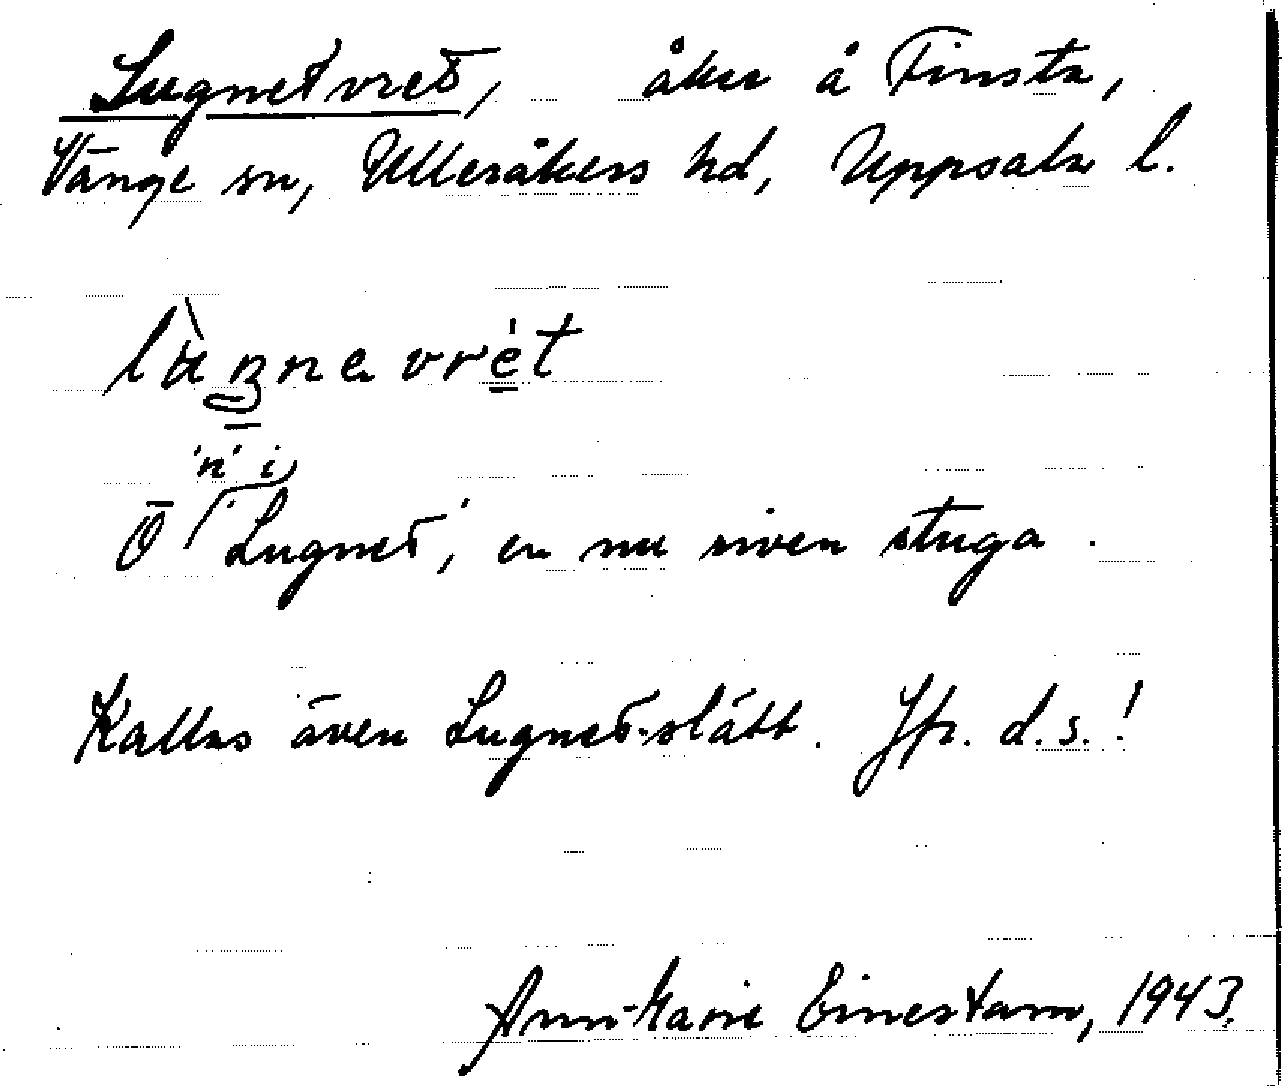 Lugnetvret, åker å Finsta,
Vänge sn, Ulleråkers hd, Uppsala l.
lùŋnavrét
'n' i
Ö Lugnet, en nu riven stuga.
Kallas även Lugnet-slått. Jfr. d.s.!
Ann-Marie Einestam, 1943.